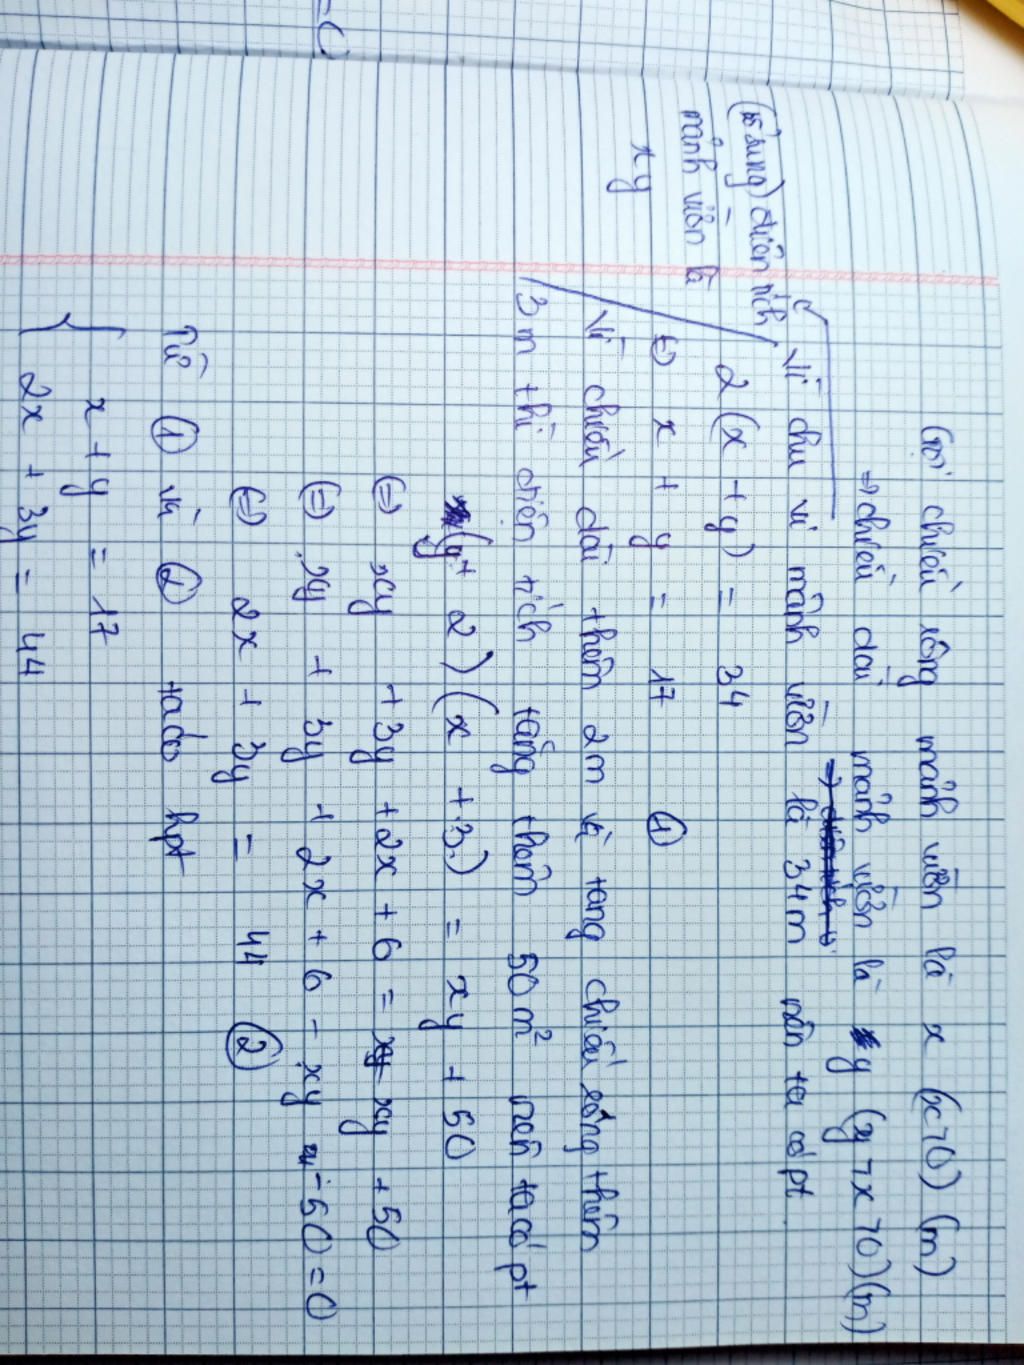 Gọi chiều rộng mảnh vườn là x (x>0) (m)
⇒ chiều dài mảnh vườn là y (y>x>0)(m)
Vì chu vi mảnh vườn là 34m nên ta có pt
(bổ sung) diện tích
mảnh vườn là
xy
2(x+y) = 34
⇔ x + y = 17 ①
Vì chiều dài thêm 2m và tang chiều rộng thêm
3m thì diện tích tăng thêm 50m² nên ta có pt
(y+2)(x+3) = xy + 50
⇔ xy +3y +2x +6 = xy +50
⇔ xy + 3y + 2x + 6 - xy - 50 = 0
⇔ 2x + 3y = 44 ②
Từ ① và ② ta có hpt
{ x + y = 17
2x + 3y = 44